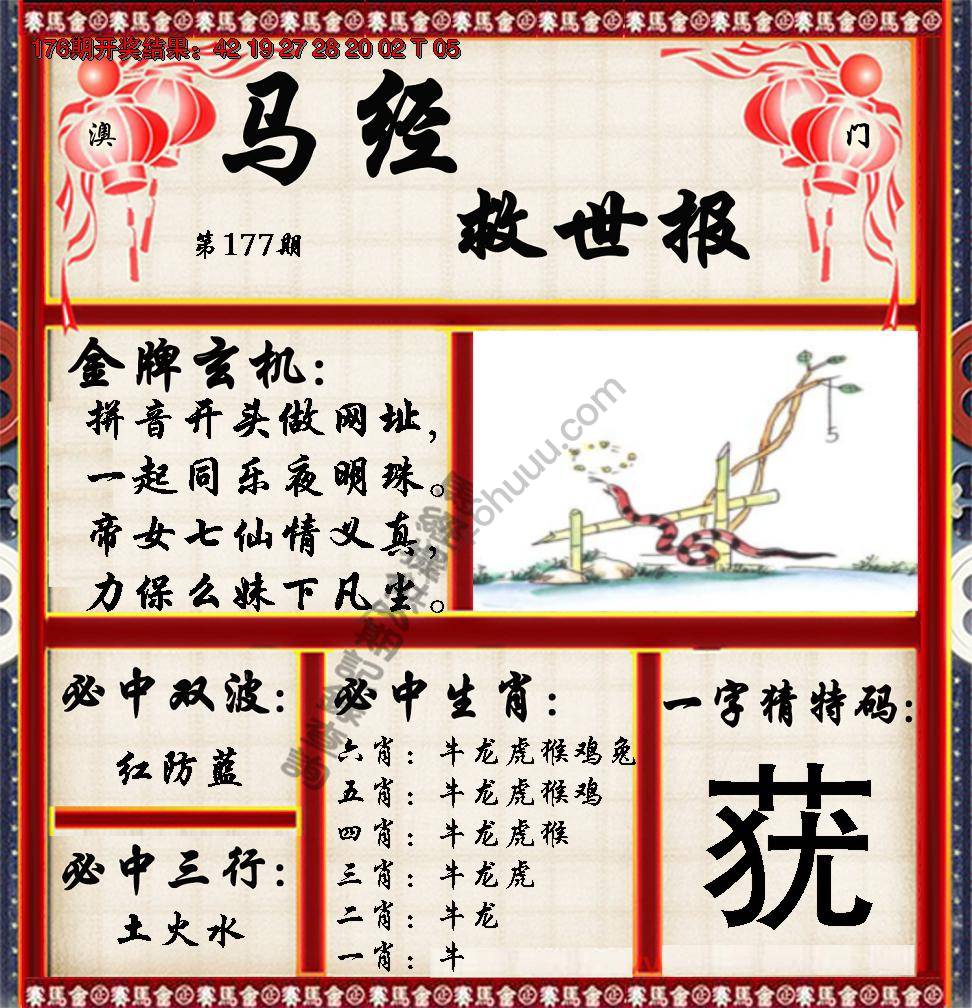 176期开奖结果：42 19 27 26 20 02 T 05
澳
门
马经
救世报
第177期
金牌玄机：
拼音开头做网址，
一起同乐夜明珠。
帝女七仙情义真，
力保么妹下凡尘。
5
必中双波：
红防蓝
必中三行：
土火水
必中生肖：
六肖：牛龙虎猴鸡兔
五肖：牛龙虎猴鸡
四肖：牛龙虎猴
三肖：牛龙虎
二肖：牛龙
一肖：牛
一字猜特码：
莸